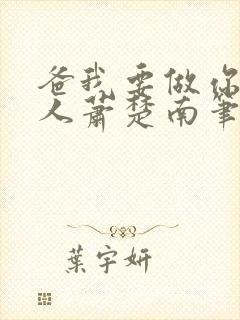 爸我要做你
人萧楚南笔
葉宇妍